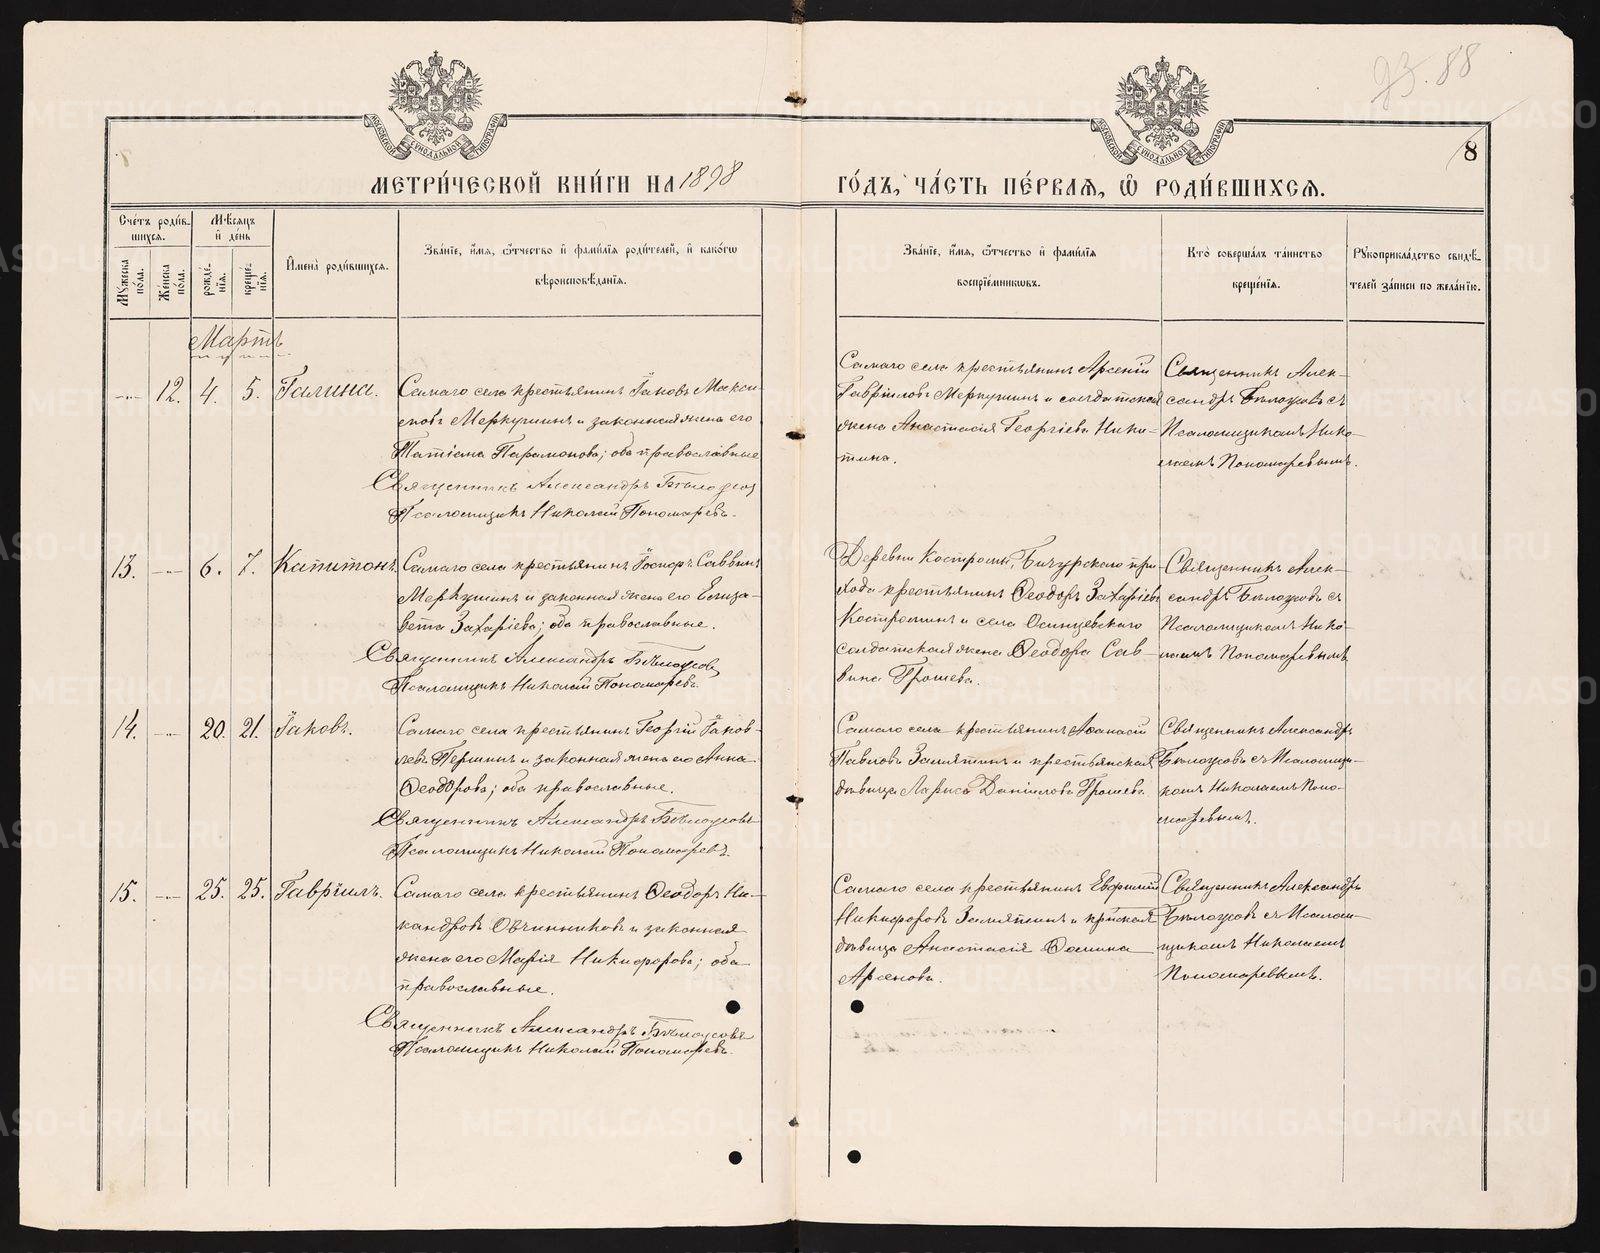 93. 88
8
МЕТРИ́ЧЕСКОЙ КНИ́ГИ НА 1898
ГО́ДЪ, ЧА́СТЬ ПЕ́РВАѦ, Ѽ РОДИ́ВШИХСѦ.
Сче́тъ роди́в-
шихсѧ.
Мѣ́сѧцъ
и҆ де́нь
Мꙋ́жеска по́ла.
Же́нска по́ла.
рожде́-
нїѧ.
креще́-
нїѧ.
И҆мена̀ роди́вшихсѧ.
Зва́нїе, и҆́мѧ, ѻ҆́тчество и҆ фами́лїѧ роди́телей, и҆ како́гѡ
вѣроисповѣ́данїѧ.
Зва́нїе, и҆́мѧ, ѻ҆́тчество и҆ фами́лїѧ
воспрїе́мникѡвъ.
Кто̀ соверша́лъ та́инство
креще́нїѧ.
Рꙋкоприкла́дство свидѣ́-
телей за́писи по жела́нїю.
Мартъ
12. 4. 5. Галина.
Самаго села крестьянинъ Іаковъ Макси-
мовъ Меркушинъ и законная жена его
Татіана Парамонова; оба православные
Священникъ Александръ Бѣлоусов
Псаломщикъ Николай Пономаревъ.
Самаго села крестьянинъ Арсеній
Гавріиловъ Меркушинъ и солдатская
жена Анастасія Георгіева Ники-
тина.
Священникъ Алек-
сандръ Бѣлоусовъ съ
Псаломщикомъ Нико-
лаемъ Пономаревымъ.
13. 6. 7. Капитонъ.
Самаго села крестьянинъ Саввинъ
Меркушинъ и законная жена его Елиза-
вета Захаріева; оба православные.
Священникъ Александръ Бѣлоусовъ
Псаломщикъ Николай Пономаревъ.
Деревни Костромы, Бичурскаго при-
хода крестьянинъ Ѳеодоръ Захаріевъ
Костроминъ и села Осинцевскаго
солдатская жена Ѳеодора Сав-
вина Грошева.
Священникъ Алек-
сандръ Бѣлоусовъ съ
Псаломщикомъ Нико-
лаемъ Пономаревымъ
14. 20. 21. Іаковъ.
Самаго села крестьянинъ Георгій Іаков-
левъ Першинъ и законная жена его Анна
Ѳеодорова; оба православные.
Священникъ Александръ Бѣлоусовъ
Псаломщикъ Николай Пономаревъ.
Самаго села крестьянинъ Аѳанасій
Павловъ Замятинъ и крестьянская
дѣвица Лариса Даніилова Грошева
Священникъ Александръ
Бѣлоусовъ съ Псаломщи-
комъ Николаемъ Поно-
маревымъ.
15. 25. 25. Гавріилъ.
Самаго села крестьянинъ Ѳеодоръ Ни-
кандровъ Овчинниковъ и законная
жена его Марія Никифорова; оба
православные.
Священникъ Александръ Бѣлоусовъ
Псаломщикъ Николай Пономаревъ.
Самаго села крестьянинъ Евфимій
Никифоровъ Замятинъ и крест́ская
дѣвица Анастасія Ѳомина
Арсенова.
Священникъ Александръ
Бѣлоусовъ съ Псалом-
щикомъ Николаемъ
Пономаревымъ.